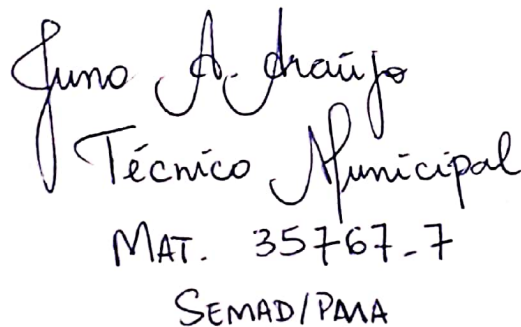 Juno A. Araújo
Técnico Municipal
MAT. 35767-7
SEMAD/PMA